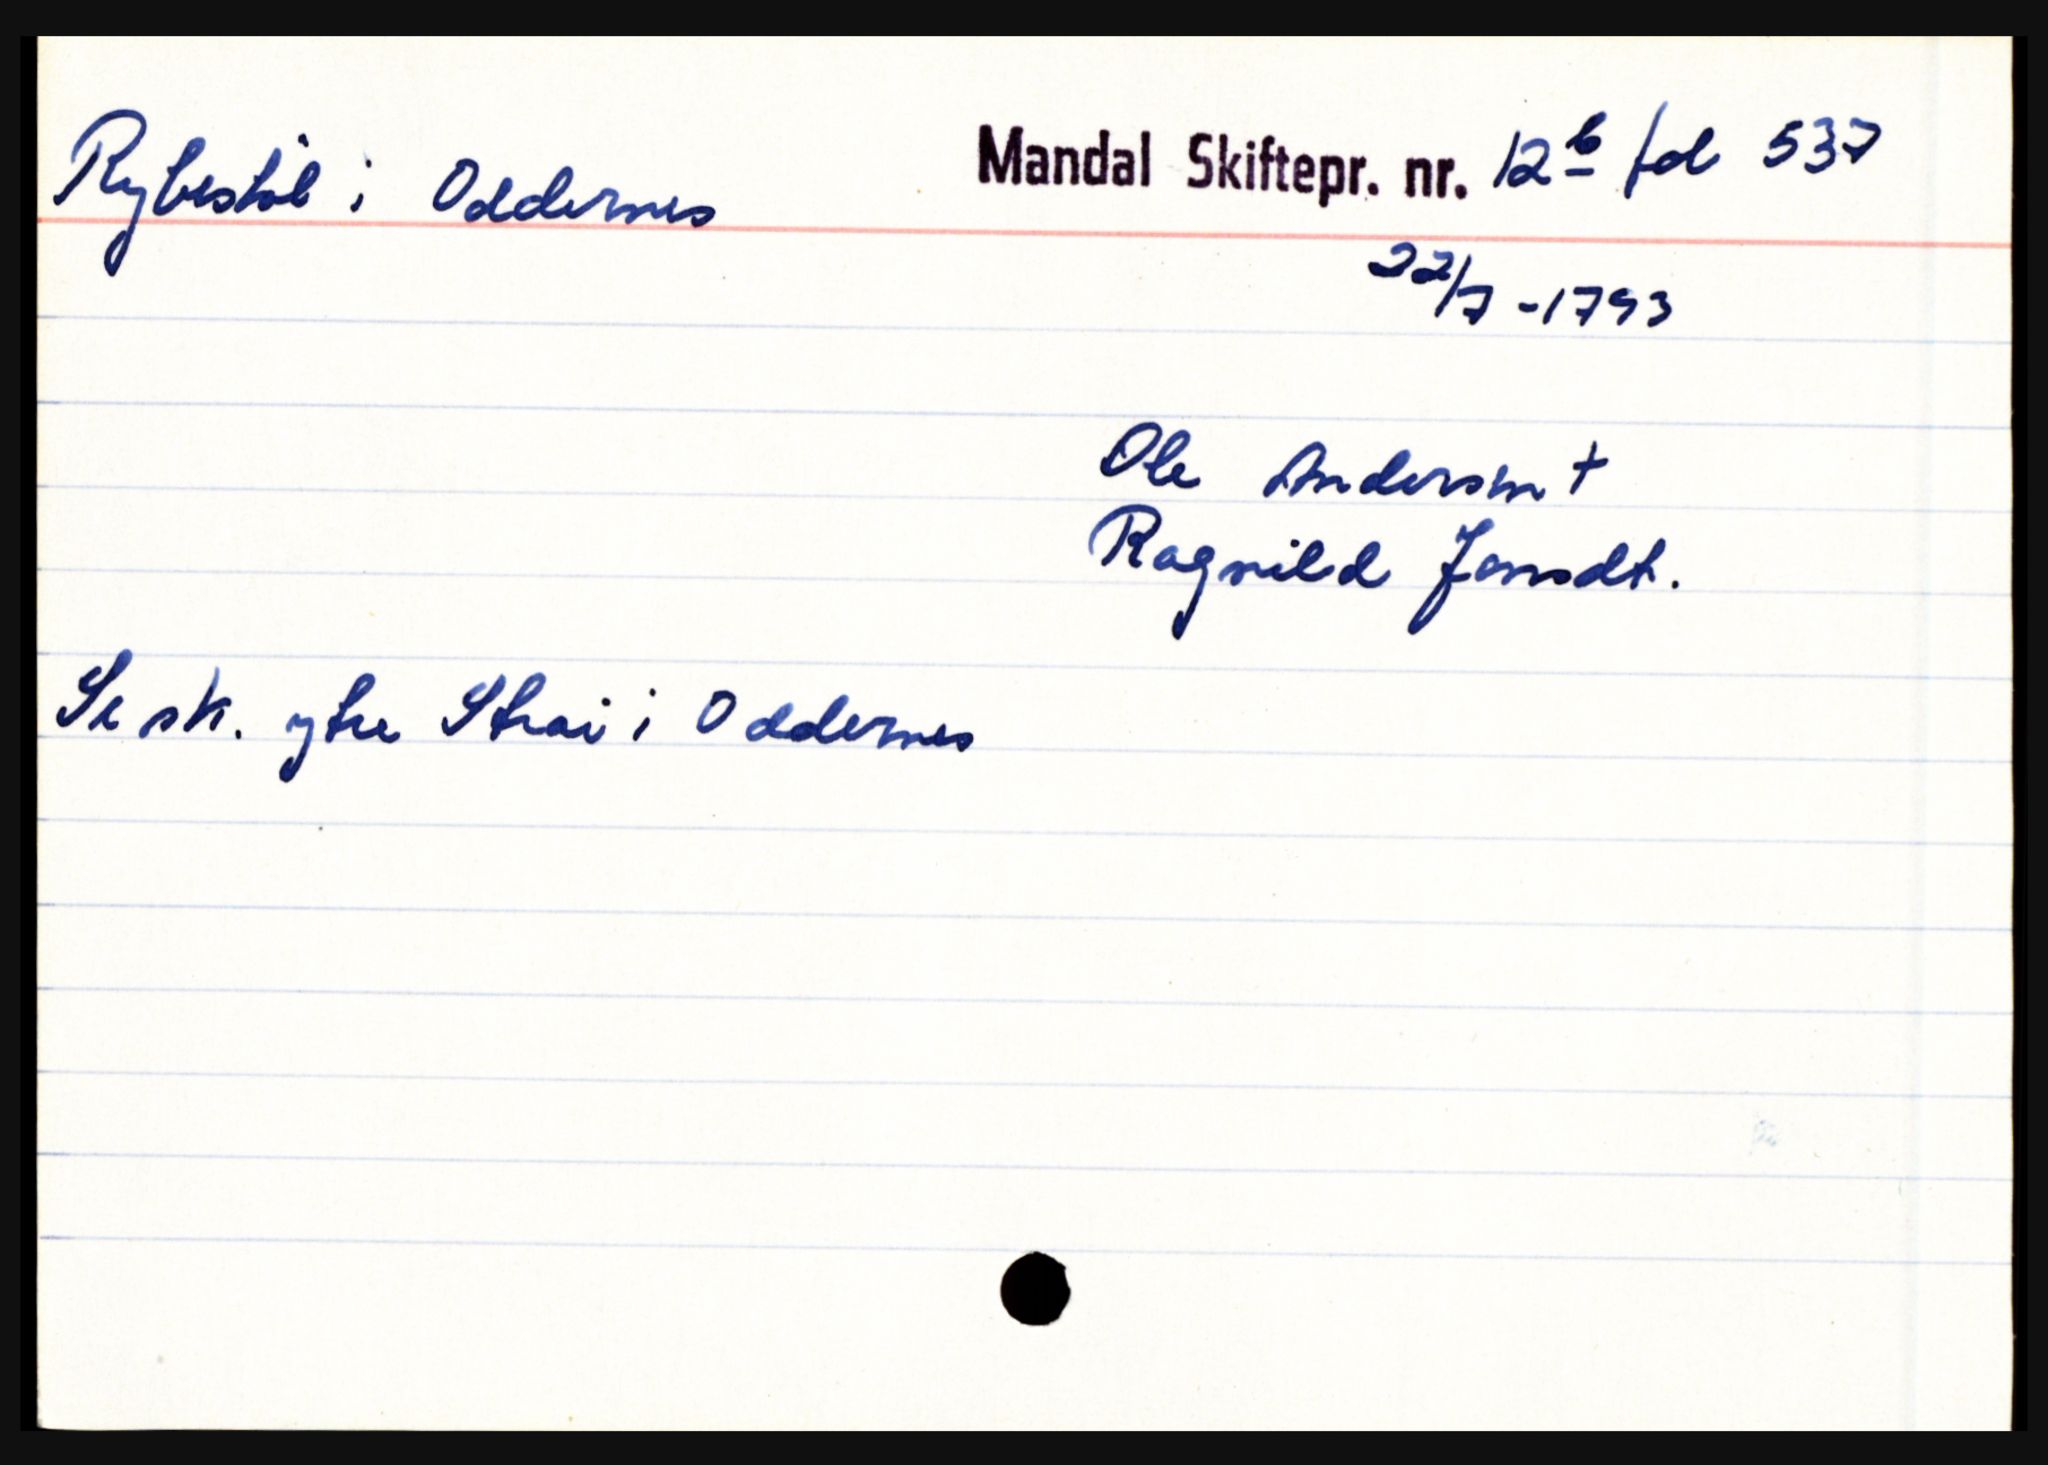 Rybestøl i Oddernes Mandal Skiftepr. nr. 12b fol 537
22/7-1793
Ole Andersen +
Ragnild Jonsdt.
Se sk. ytre Strai i Oddernes